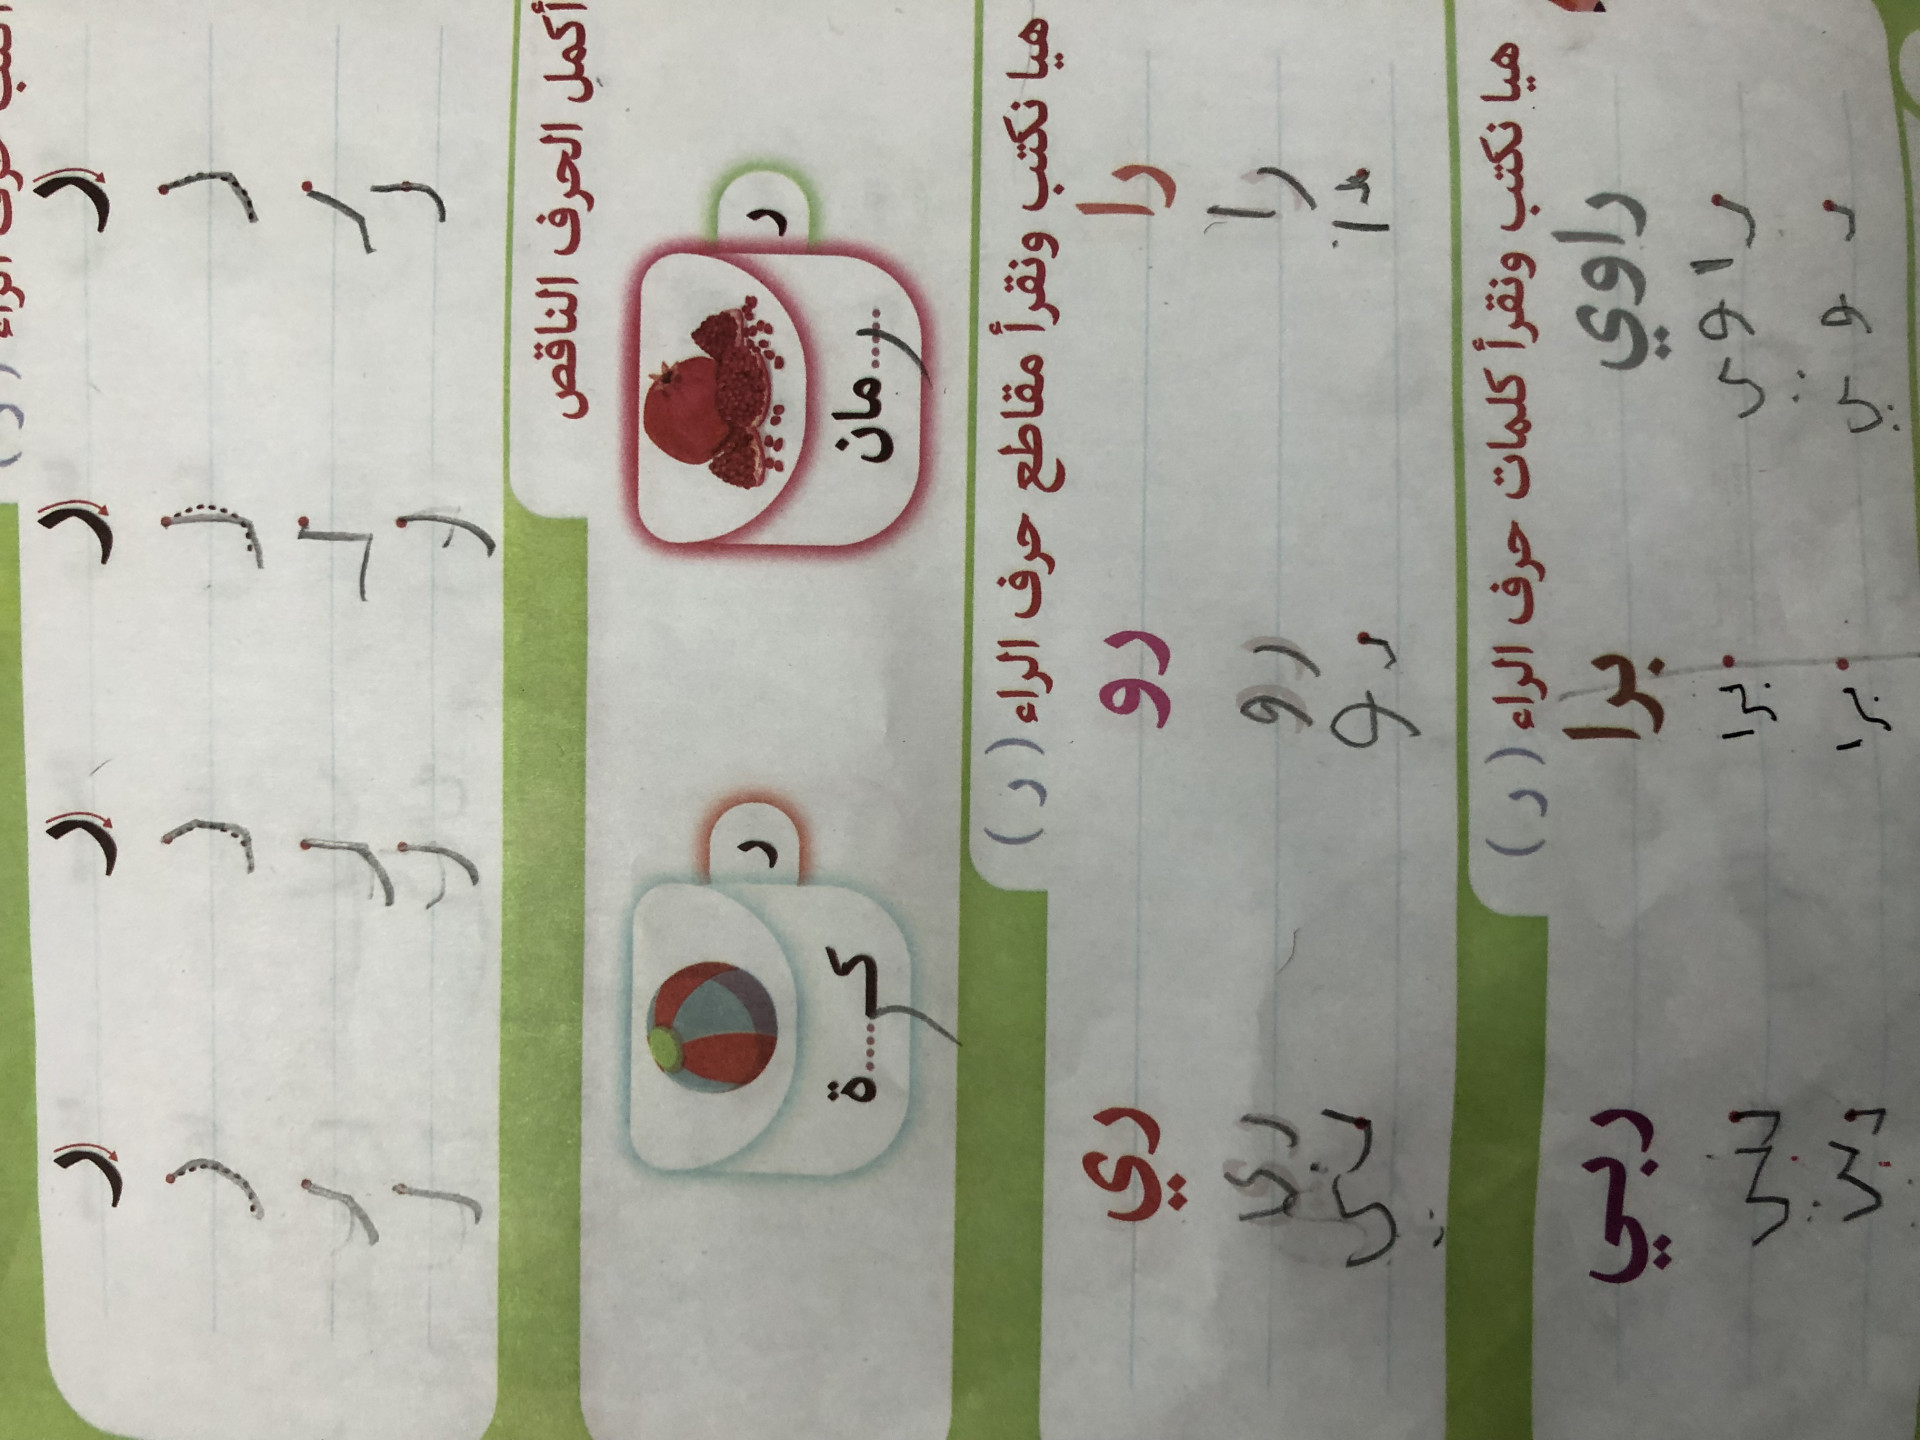 ر ر ر ر
ر ر ر ر
ر ر ر ر
ر ر ر ر
أكمل الحرف الناقص
ر ر
ر....مان كـ....ر....ة
هيا نكتب ونقرأ مقاطع حرف الراء ( ر )
را رو ري
را رو ري
را رو ري
هيا نكتب ونقرأ كلمات حرف الراء ( ر )
راوي برا ربي
راوي برا ربي
ر وي برا ربي